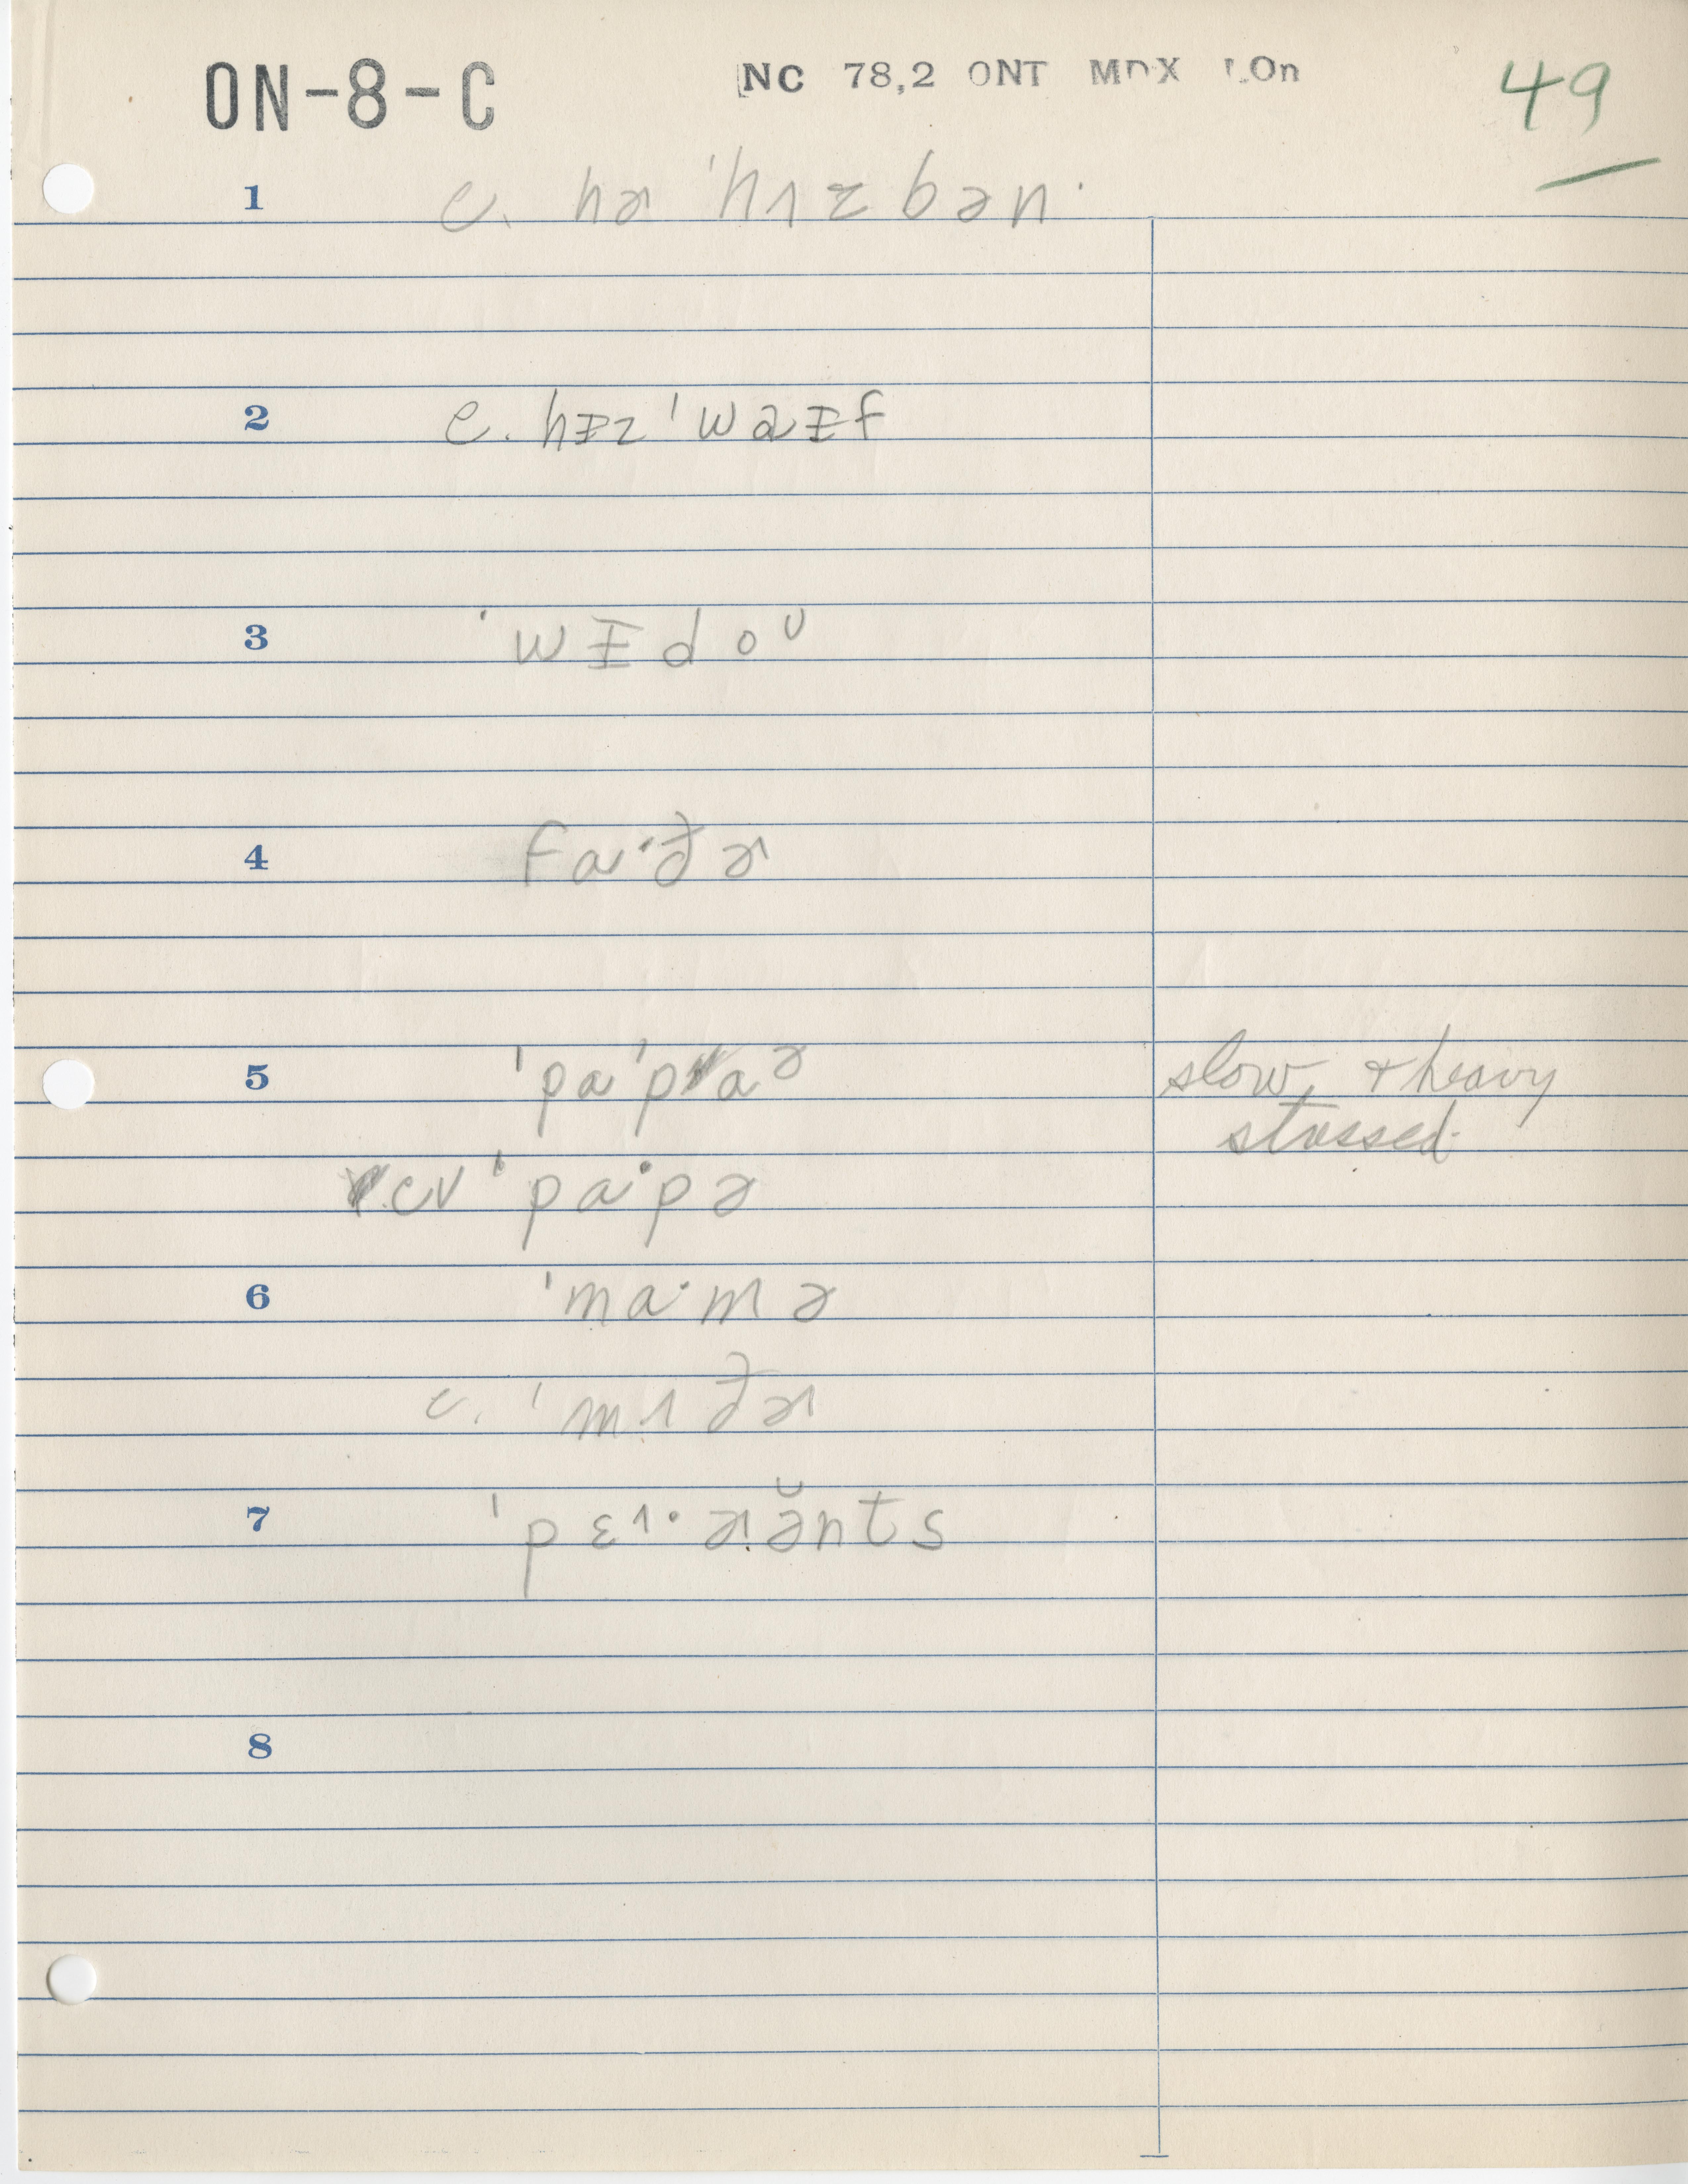 ON-8-C
NC 78,2 ONT MDX LOn
49
1 c. hɚ ˈhʌzbən
2 c. hɪz ˈwaɪf
3 ˈwɪdoᶷ
4 fa·ðɚ
5 ˈpaˈpaᵊ slow, & heavy
stressed
cv ˈpa·pə
6 ˈma·mə
c. ˈmʌðɚ
7 ˈpɛɪ·ɚə̆nts
8